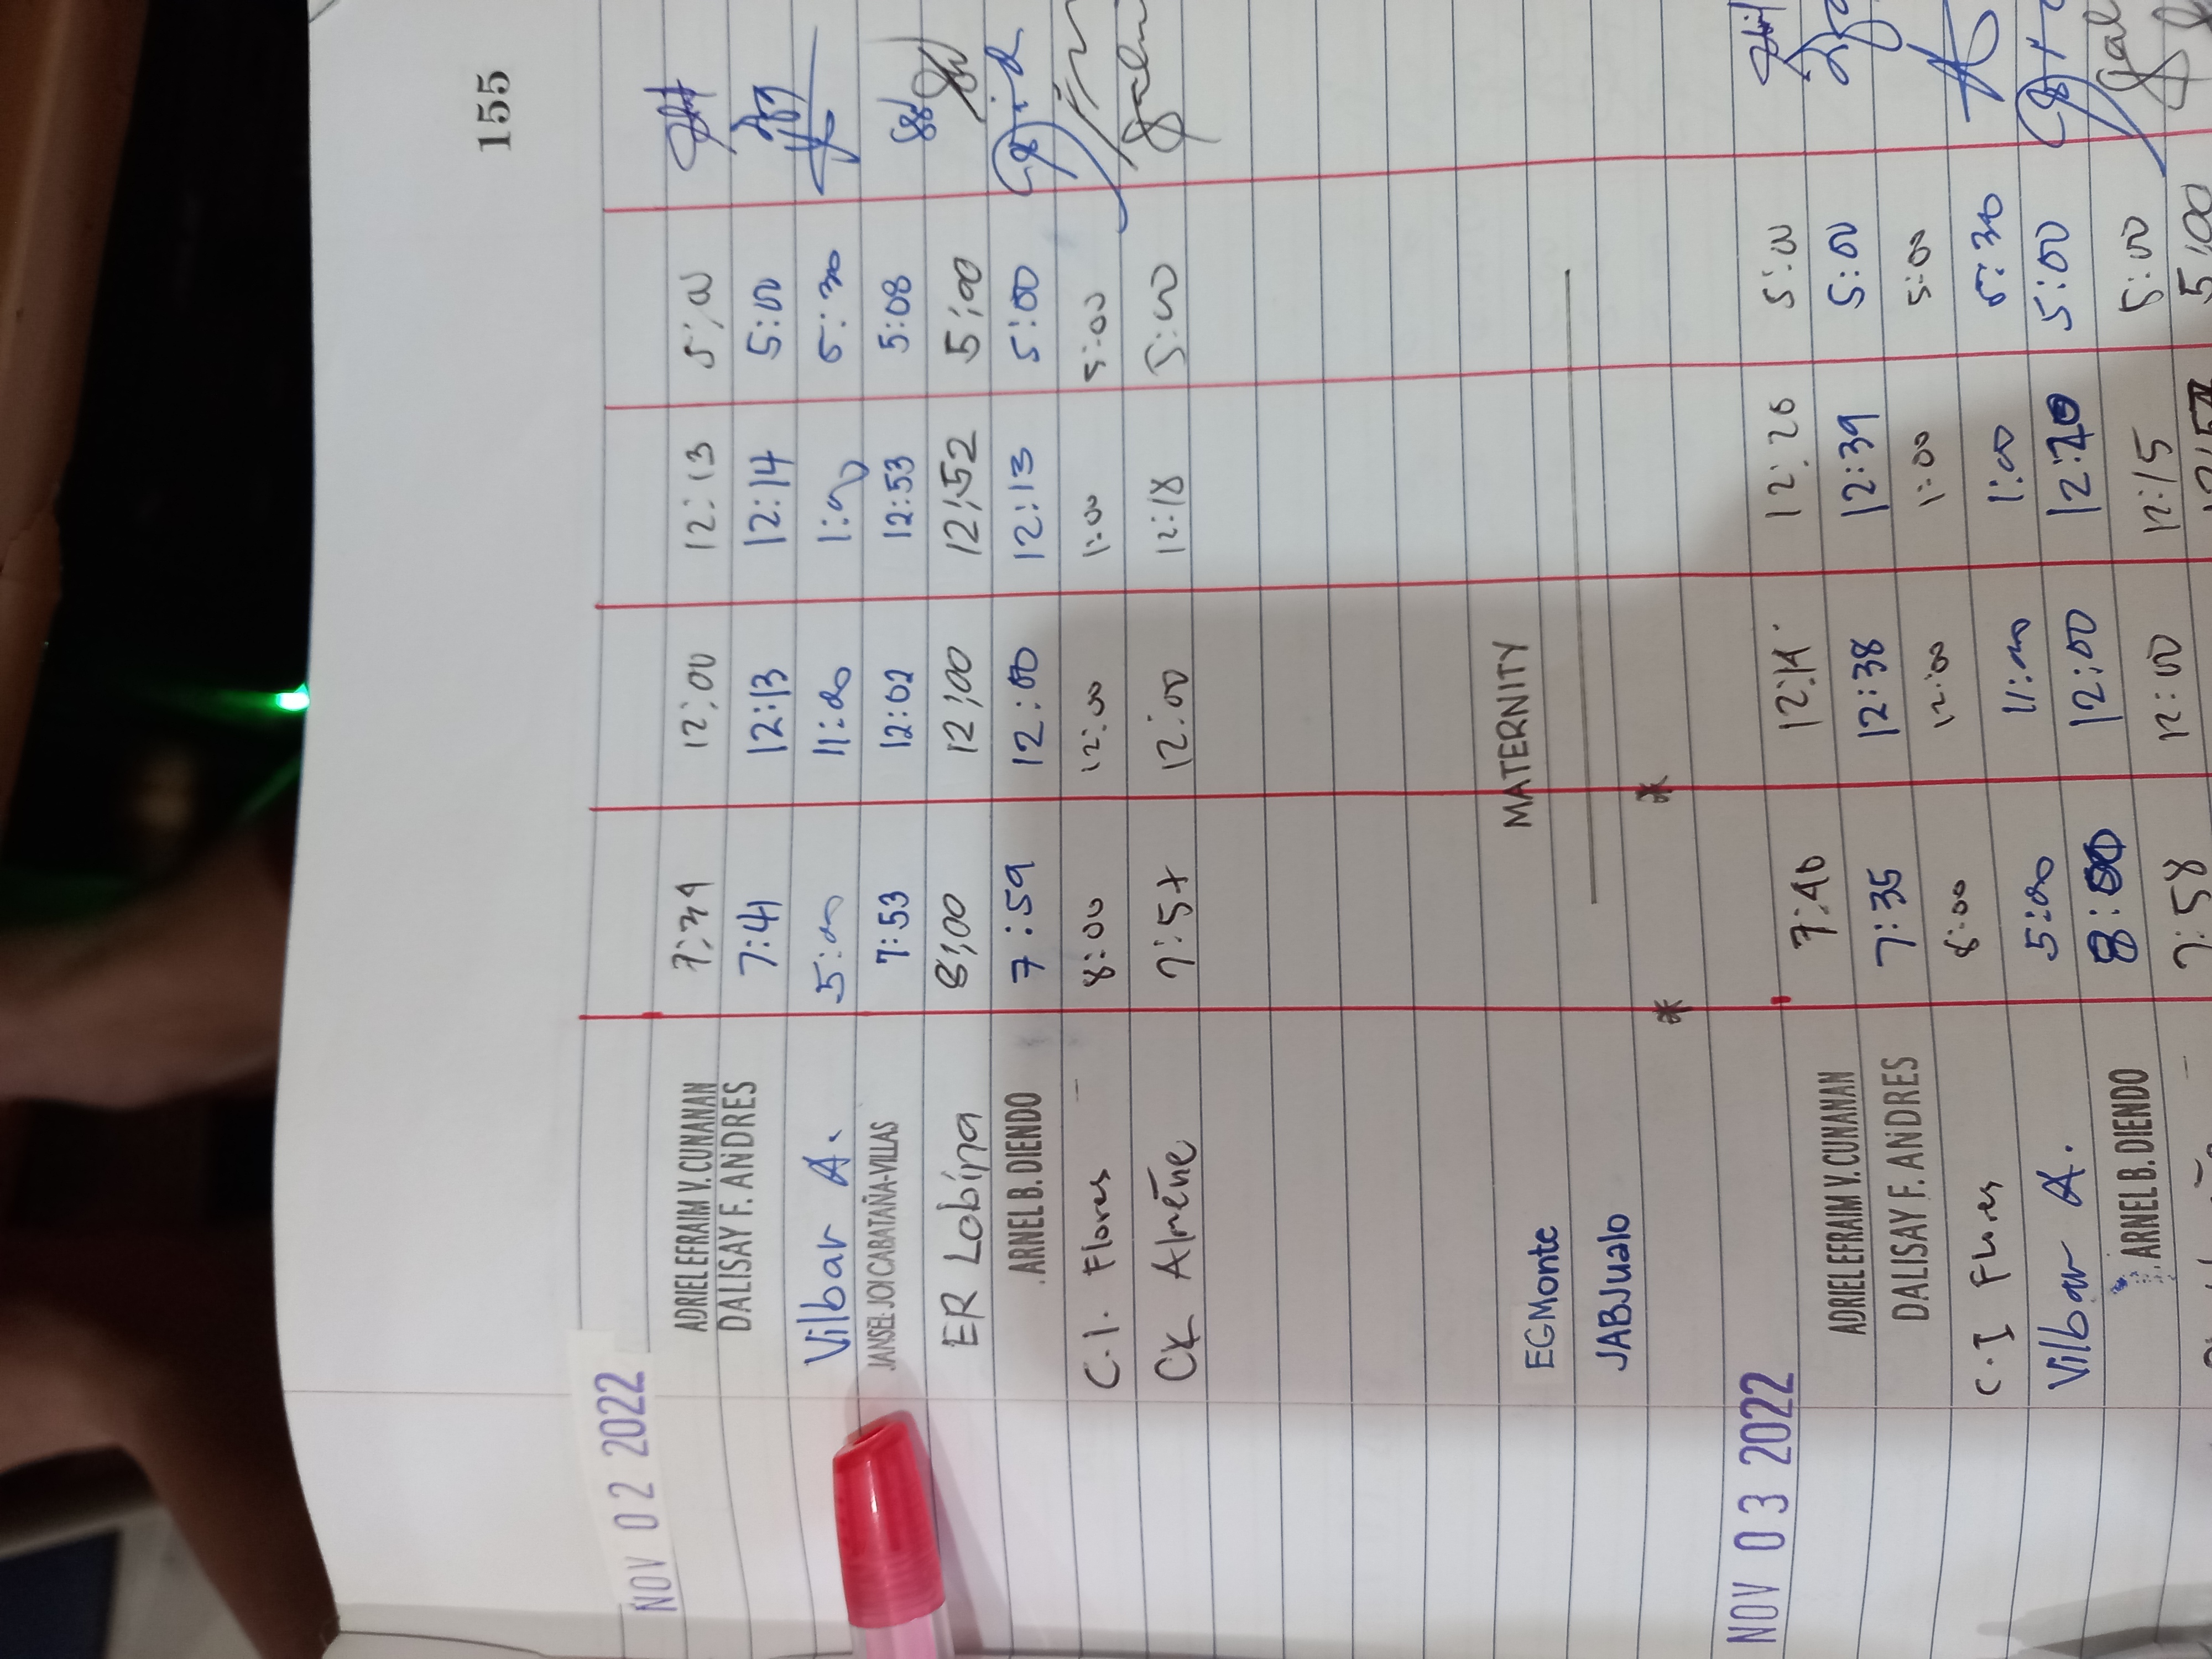 155
NOV 02 2022
ADRIEL EFRAIM V. CUNANAN 7:39 12:00 12:13 5:00
DALISAY F. ANDRES 7:41 12:13 12:14 5:00
Vilbar A. 5:00 11:00 1:00 5:30
JANSEL JOI CABATAÑA-VILLAS 7:53 12:02 12:53 5:08
ER Lobina 8:00 12:00 12:52 5:00
ARNEL B. DIENDO 7:59 12:00 12:13 5:00
C.I. Flores 8:00 12:00 1:00 5:00
12:00 12:18 5:00
EGMonte MATERNITY
JABJualo
* *
NOV 03 2022
ADRIEL EFRAIM V. CUNANAN 7:40 12:14 12:28 5:00
DALISAY F. ANDRES 7:35 12:38 12:39 5:00
C.I Flores 8:00 12:00 1:00 5:00
Vilbar A. 5:00 11:00 1:00 5:30
ARNEL B. DIENDO 8:00 12:00 12:20 5:00
7:58 12:00 12:15 5:00
5:00